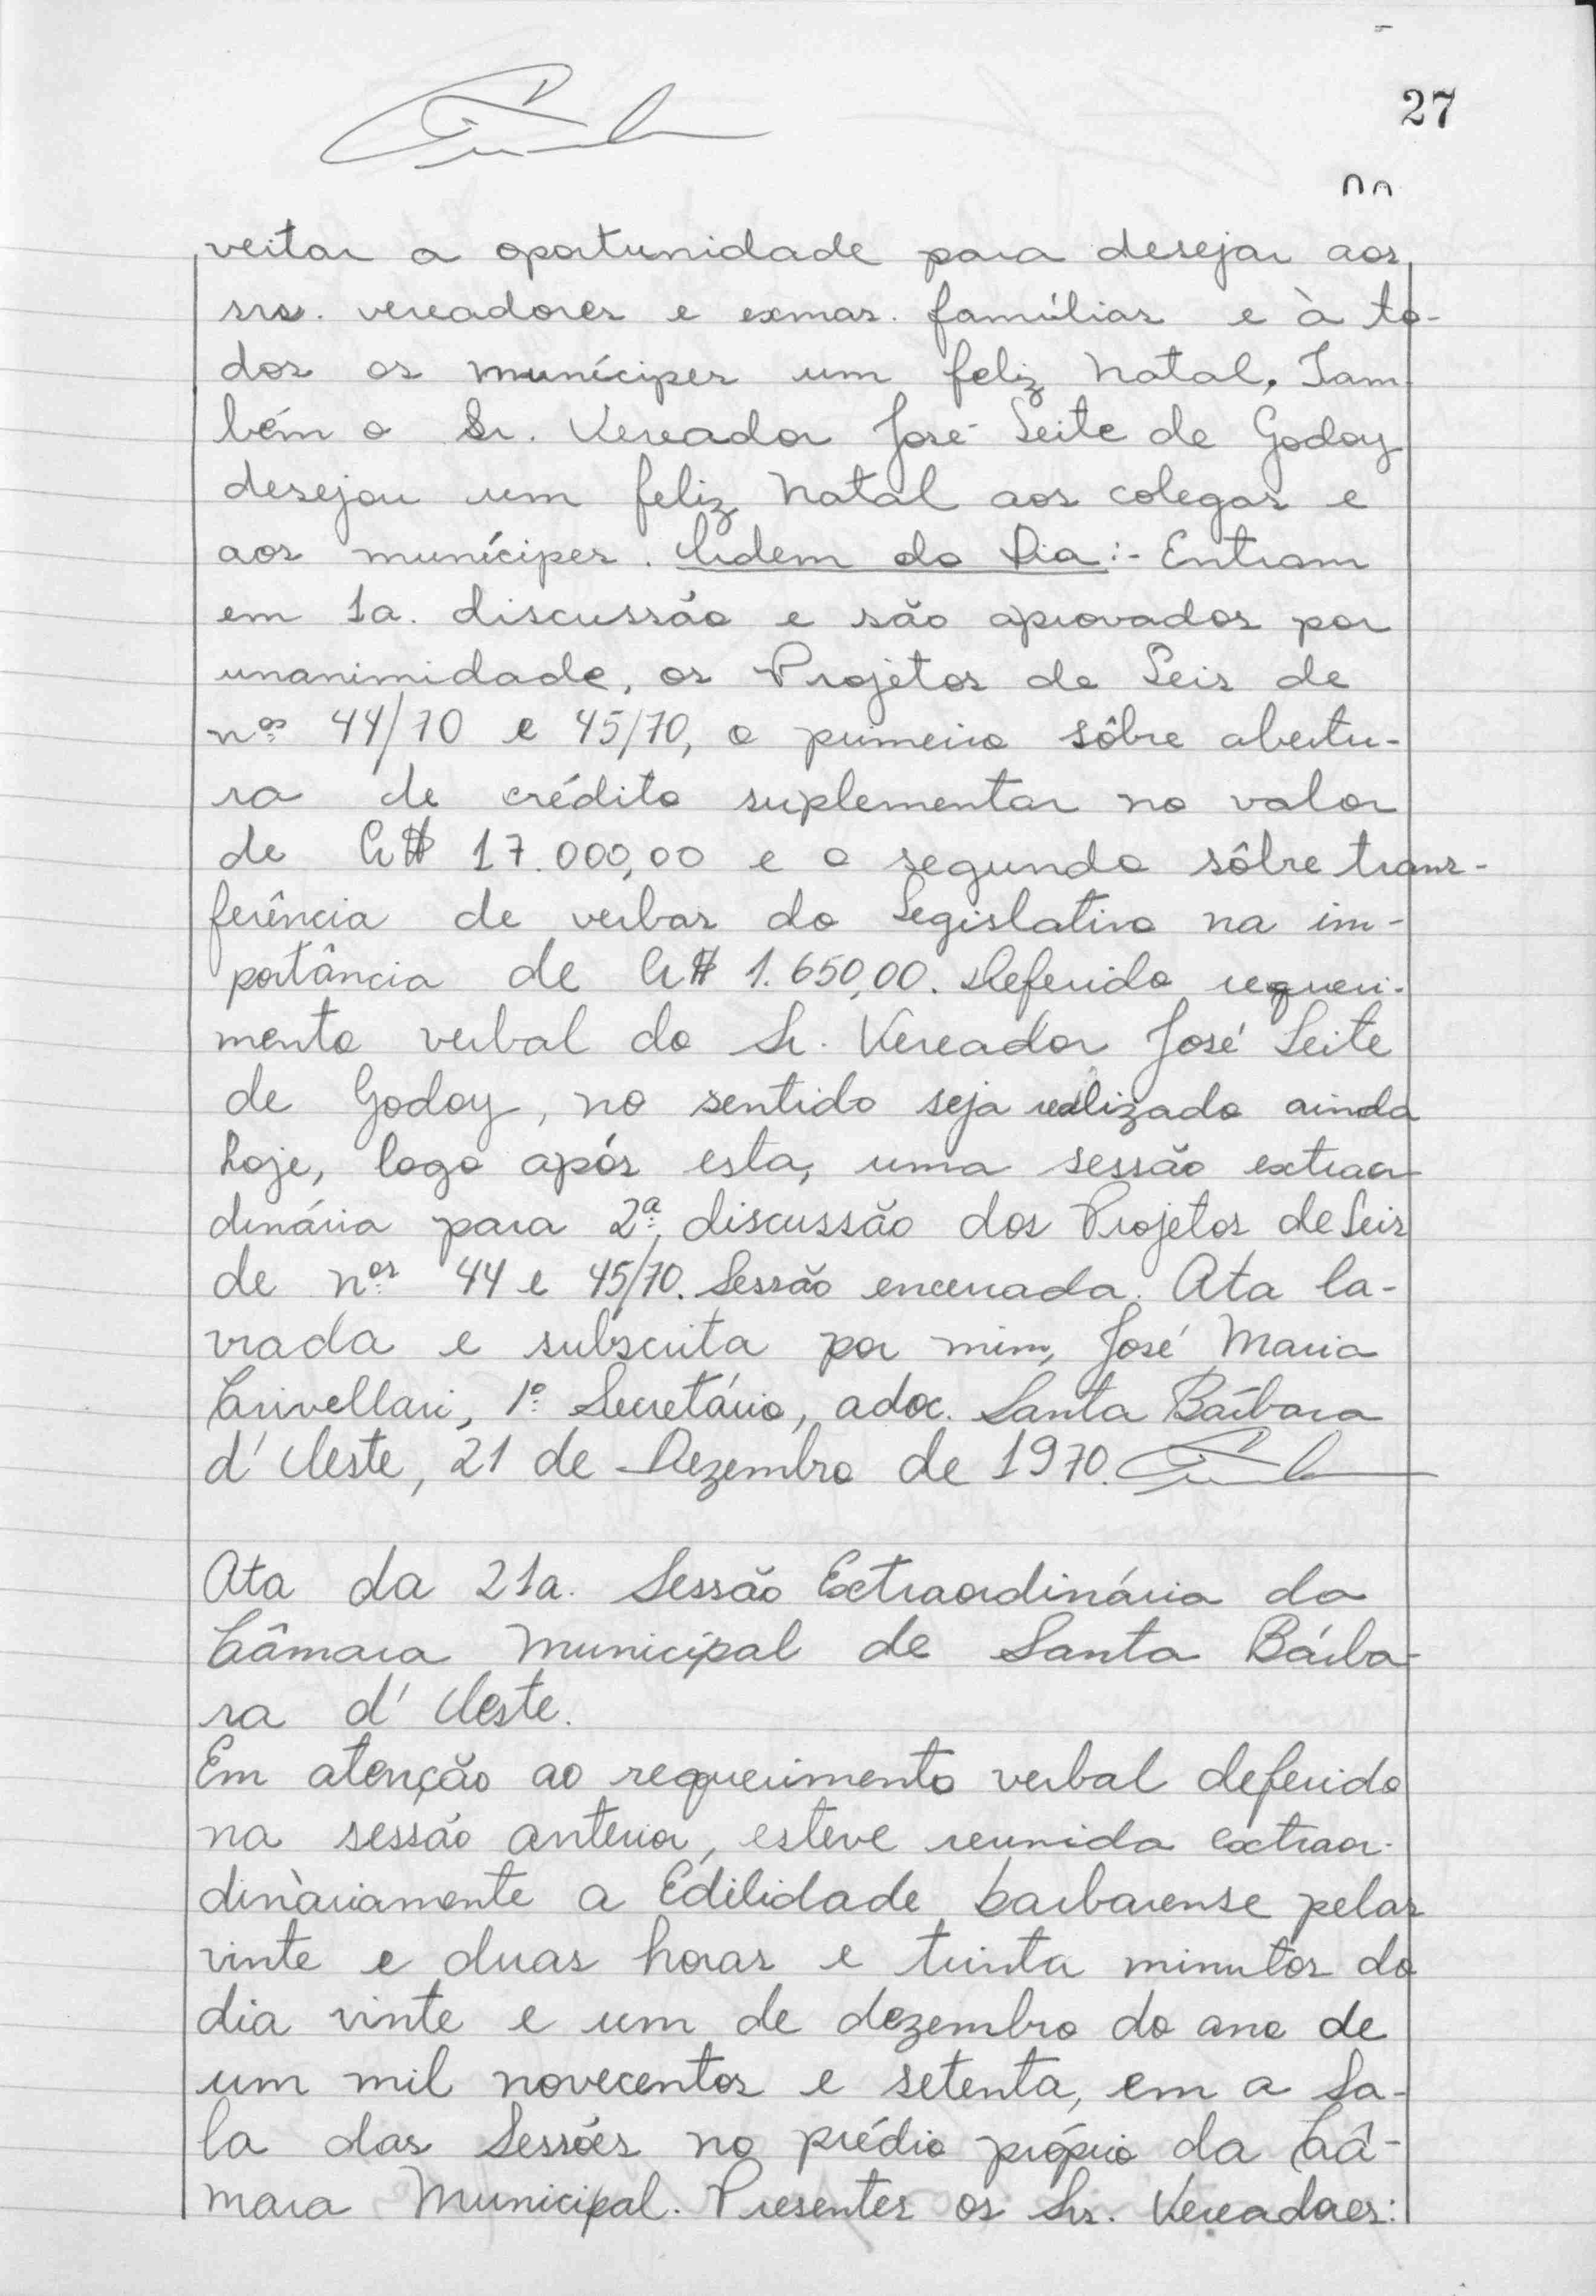 27
veitar a oportunidade para desejar aos
srs. vereadores e exmas. famílias e à to-
dos os munícipes um feliz Natal. Tam
bém o Sr. Vereador José Leite de Godoy
desejou um feliz Natal aos colegas e
aos munícipes. Ordem do Dia:- Entram
em 1a. discussão e são aprovados por
unanimidade, os Projetos de Leis de
nos 44/70 e 45/70, o primeiro sôbre abertu-
ra de crédito suplementar no valor
de Cr$ 17.000,00 e o segundo sôbre trans-
ferência de verbas do Legislativo na im-
portância de Cr$ 1.650,00. Deferido requeri-
mento verbal do Sr. Vereador José Leite
de Godoy, no sentido seja realizado ainda
hoje, logo após esta, uma sessão extraor
dinária para 2ª discussão dos Projetos de Leis
de nos 44 e 45/70. Sessão encerrada. Ata la-
vrada e subscrita por mim, José Maria
Crivellari, 1º Secretário, adoc. Santa Bárbara
d'Oeste, 21 de Dezembro de 1970.
Ata da 21a. Sessão Extraordinária da
Câmara Municipal de Santa Bárba-
ra d'Oeste.
Em atenção ao requerimento verbal deferido
na sessão anterior, esteve reunida extraor-
dinàriamente a Edilidade barbarense pelas
vinte e duas horas e trinta minutos do
dia vinte e um de dezembro do ano de
um mil novecentos e setenta, em a Sa-
la das Sessões no prédio próprio da Câ-
mara Municipal. Presentes os Srs. Vereadores: